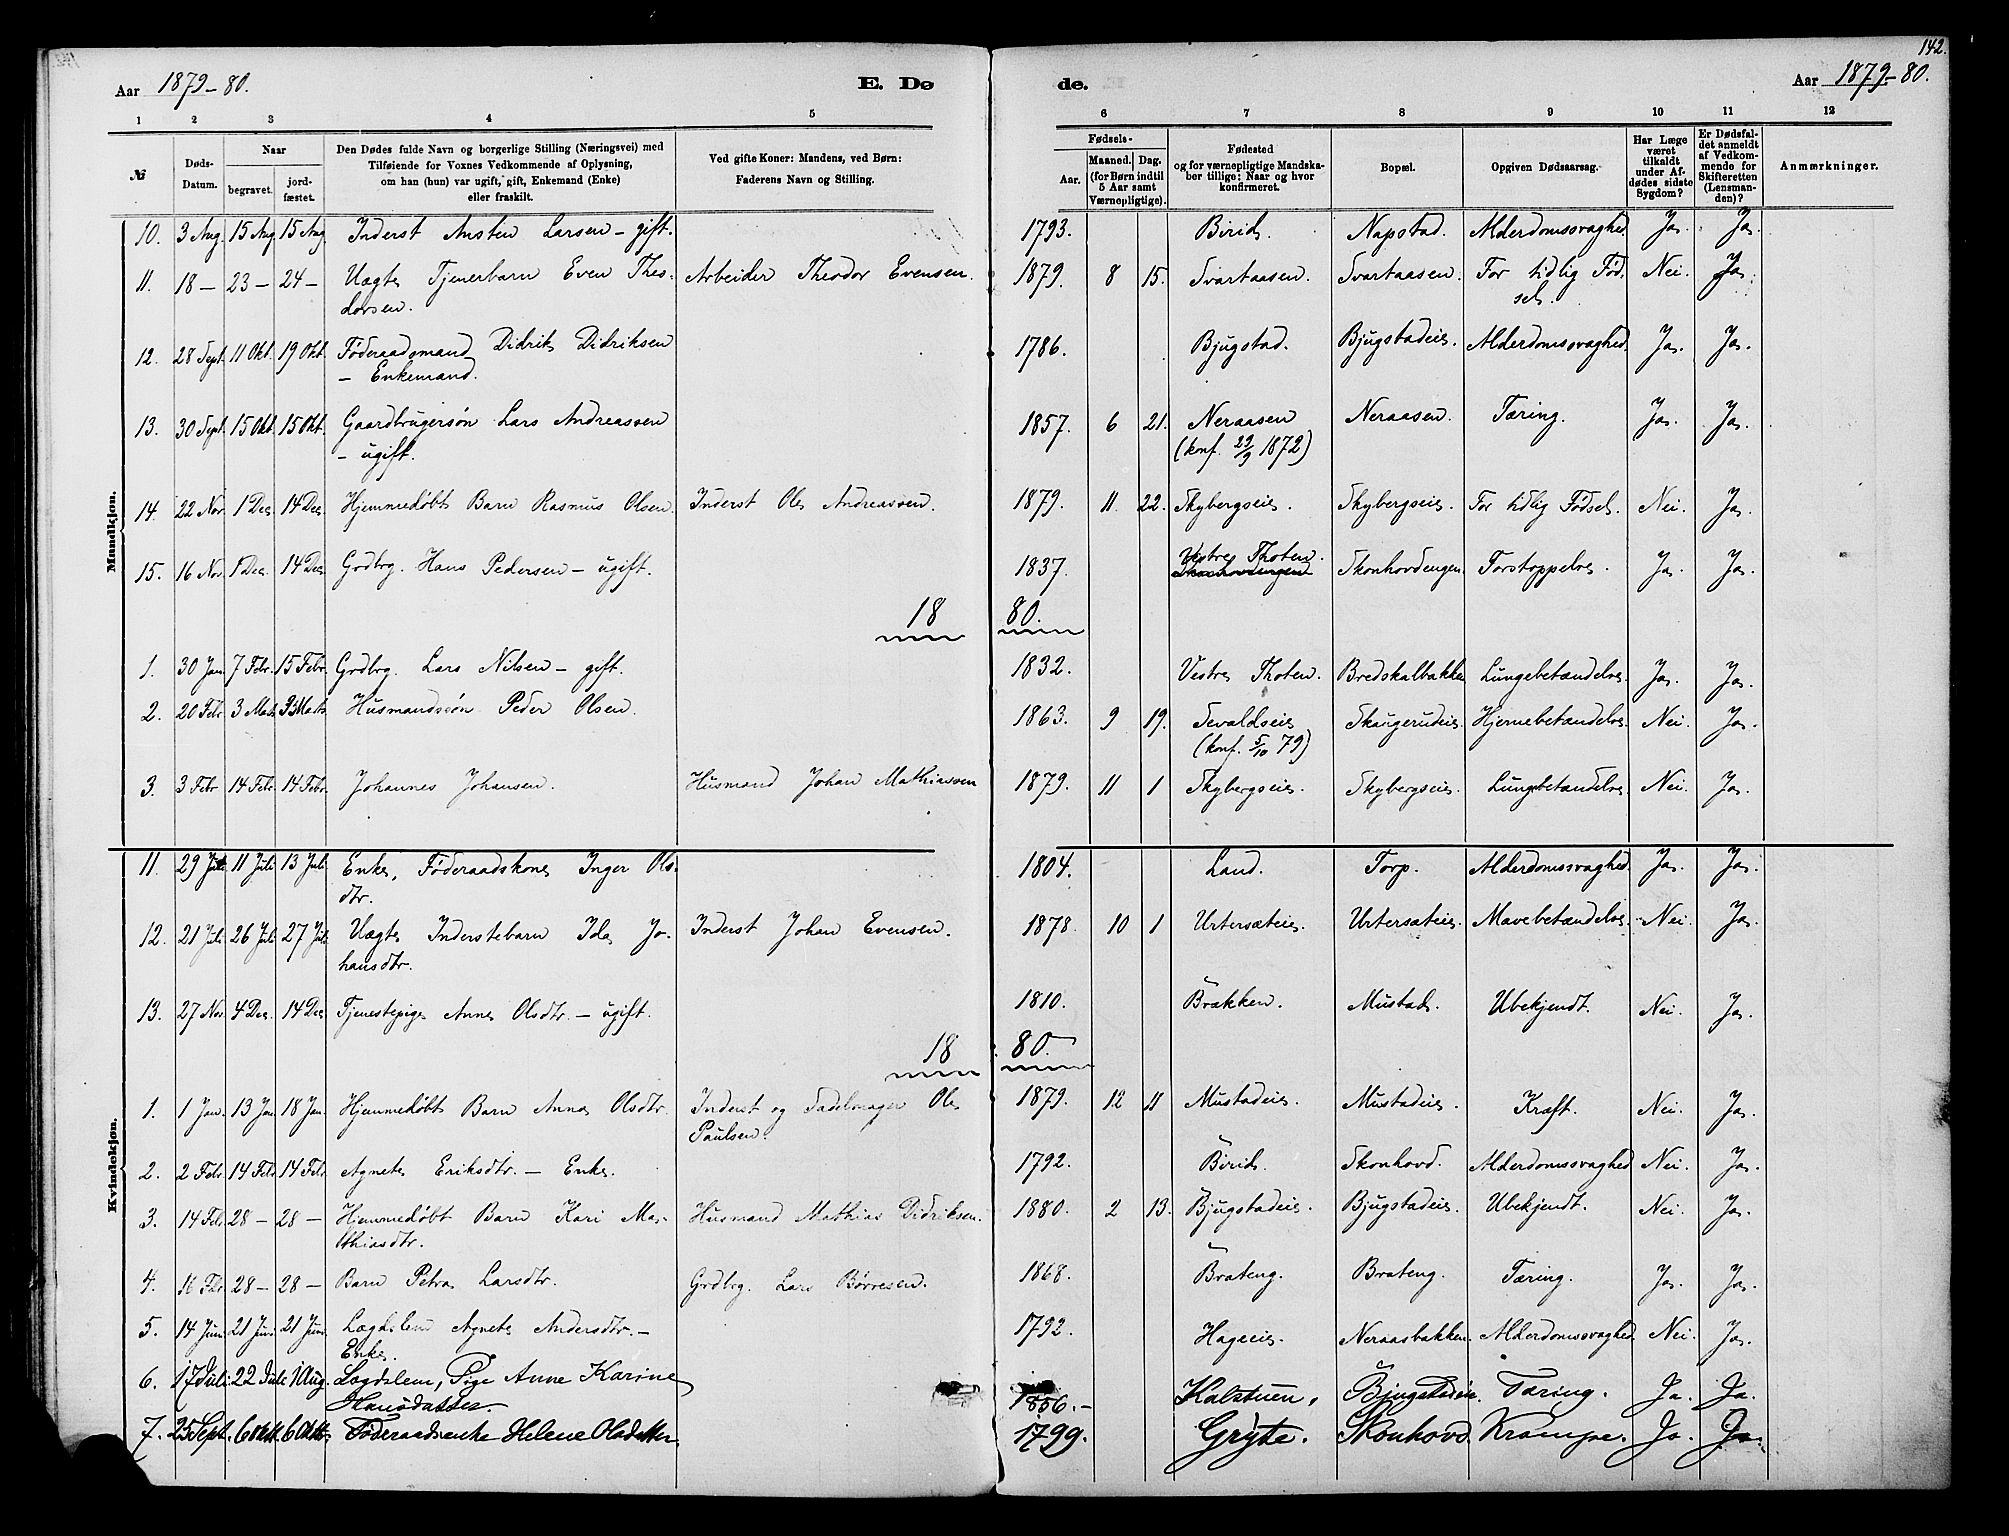 142.
Aar 1879-80. E. Dø de. Aar 1879-80.
1 2 3 4 5 6 7 8 9 10 11 12
№
Døds-Datum.
Naar
begravet.
jord-fæstet.
Den Dødes fulde Navn og borgerlige Stilling (Næringsvei) med
Tilføiende for Voxnes Vedkommende af Oplysning,
om han (hun) var ugift, gift, Enkemand (Enke)
eller fraskilt.
Ved gifte Koner: Mandens, ved Børn:
Faderens Navn og Stilling.
Fødsels-
Aar.
Maaned. Dag.
(for Børn indtil
5 Aar samt
Værnepligtige).
Fødested
og for værnepligtige Mandska-
ber tillige: Naar og hvor
konfirmeret.
Bopæl.
Opgiven Dødsaarsag.
Har Læge
været
tilkaldt
under Af-
dødes sidste
Sygdom?
Er Dødsfal-
det anmeldt
af Vedkom-
mende for
Skifteretten
(Lensman-
den)?
Anmærkninger.
Mandkjøn.
10. 3 Aug. 15 Aug. 15 Aug. Inderst Ansten Larsen – gift. 1793. Birid. Napstad. Alderdomssvaghed Ja. Ja.
11. 18 – 23 – 24 – Uægte Tjenerbarn Even Theo- Arbeider Theodor Evensen. 1879. 8 15. Svartaasen. Svartaasen. For tidlig Fød- Nei. Ja.
dorsen. sel.
12. 28 Sept. 11 Okt. 19 Okt. Føderaadsmand Didrik Didriksen 1786. Bjugstad. Bjugstadeie. Alderdomssvaghed. Ja. Ja.
– Enkemand.
13. 30 Sept. 15 Okt. 15 Okt. Gaardbrugersøn Lars Andreassen 1857. 6 21. Neraasen Neraasen. Tæring. Ja. Ja.
– ugift. (konf. 29/9 1872)
14. 22 Nov. 1 Dec. 14 Dec. Hjemmedøbt Barn Rasmus Olsen. Inderst Ole Andreassen. 1879. 11. 22. Skybergseie. Skybergseie. For tidlig Fødsel. Nei. Ja.
15. 16 Nov. 1 Dec. 14 Dec. Grdbrg. Hans Pedersen – ugift. 1837. Vestre Thoten. Skonhovdengen. Forstoppelse. Ja. Ja.
18 80.
1. 30 Jan. 7 Febr. 15 Febr. Grdbrg. Lars Nilsen – gift. 1832. Vestre Thoten. Bredskalbakken Lungebetændelse. Ja. Ja.
2. 20 Febr. 3 Marts Marts Husmandssøn Peder Olsen. 1863. 9 19. Sevaldseie Skaugerudeie. Hjernebetændelse. Nei. Ja.
(konf. 5/10 79)
3. 3 Febr. 14 Febr. 14 Febr. Johannes Johansen. Husmand Johan Mathiassen 1879. 11 1 Skybergseie. Skybergseie. Lungebetændelse Nei. Ja.
Kvindekjøn.
11. 29 11 Juli 13 Juli Enke, Føderaadskone Inger Ols- 1804. Land. Torp. Alderdomssvaghed. Ja. Ja.
dtr.
12. 21 Juli 26 Juli 27 Juli Uægte Inderstebarn Ida Jo- Inderst Johan Evensen. 1878. 10 1 Urtersæteie. Urtersæteie. Mavebetændelse. Nei. Ja.
hansdtr.
13. 27 Nov. 4 Dec. 14 Dec. Tjenestepige Anne Olsdtr. – ugift. 1810. Brækken. Mustad. Ubekjendt. Nei. Ja.
18 80.
1. 1 Jan. 13 Jan. 18 Jan. Hjemmedøbt Barn Anna Olsdtr. Inderst og Sadelmager Ole 1879. 12 11 Mustadeie. Mustadeie. Kræft. Nei. Ja.
Paulsen.
2. 2 Febr. 14 Febr. 14 Febr. Agnete Eriksdtr. – Enke. 1792. Birid. Skonhovd. Alderdomssvaghed Nei. Ja.
3. 14 Febr. 28 – 28 – Hjemmedøbt Barn Kari Ma- Husmand Mathias Didriksen. 1880. 2 13. Bjugstadeie. Bjugstadeie. Ubekjendt. Nei. Ja.
thiasdtr.
4. 16 Febr. 28 – 28 – Barn Petra Larsdtr. Grdbrg. Lars Børresen. 1868. Brateng. Brateng. Tæring. Ja. Ja.
5. 14 Juni 21 Juni 21 Juni Lægdslem Agnete Andersdtr. – 1792. Hageeie. Neraasbakken. Alderdomssvaghed Nei. Ja.
Enke.
6. 17 Juli 22 Juli 1 Aug. Lægdslem, Pige Anne Karine
Hansdatter. 1856. – Kalstuen. Bjugstadeie. Tæring. Ja. Ja.
7. 25 Sept. 6 Okt. 6 Okt. Føderaadsenke Helene Olsdatter. 1799. Gryte. Skonhovd. Krampe. Ja. Ja.